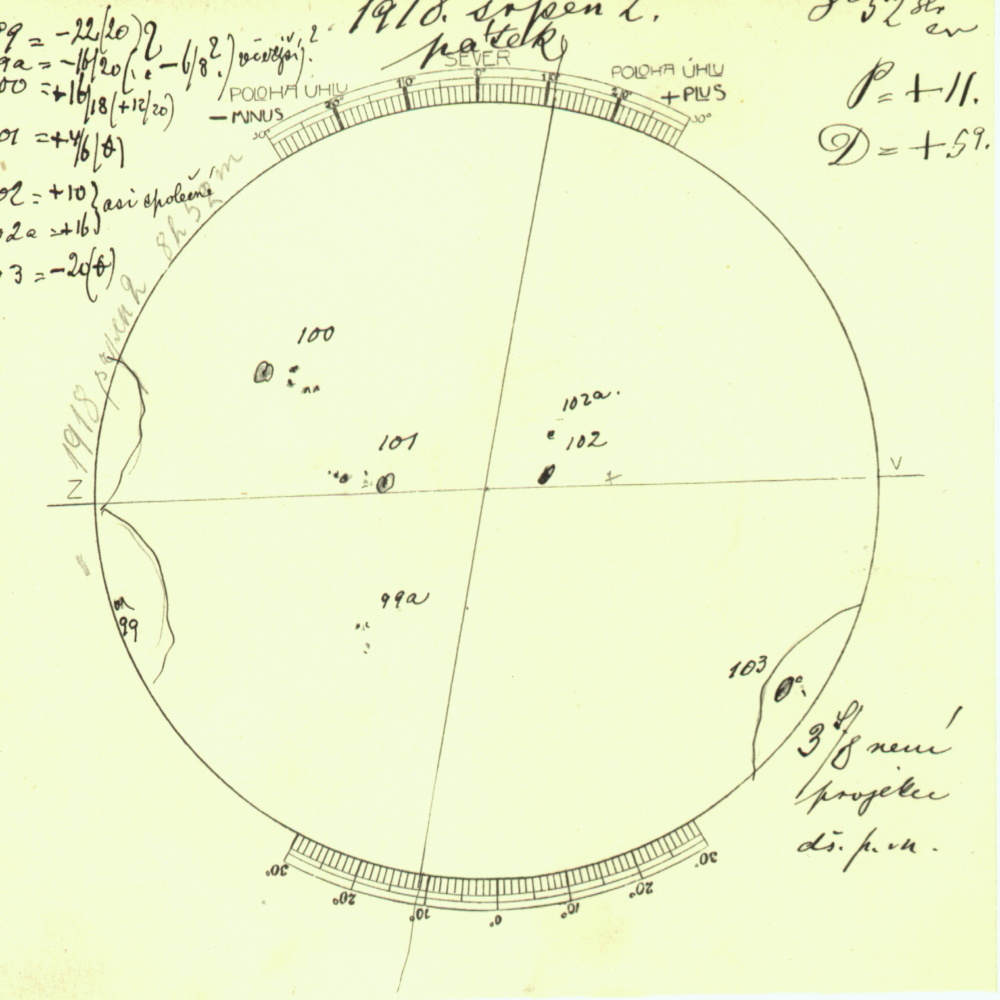 1918. srpen 2.
pátek
P = +11.
D = +59.
99 = -22(20)
99a = -16/20 (-6/8?) včerejší?
00 = +16/18 (+12/20)
01 = +4/6 (8)
02 = +10 } asi společné
02a = +16
03 = -20(8)
SEVER
POLOHA ÚHLU
- MINUS
POLOHA ÚHLU
+ PLUS
30° 20° 10° 0° 10° 20° 30°
1918 srpen 2 8h 52m
100
102a.
102
101
Z
V
99a
99
103
3/8 není
projekce
dš. p. m.
30° 20° 10° 0° 10° 20° 30°